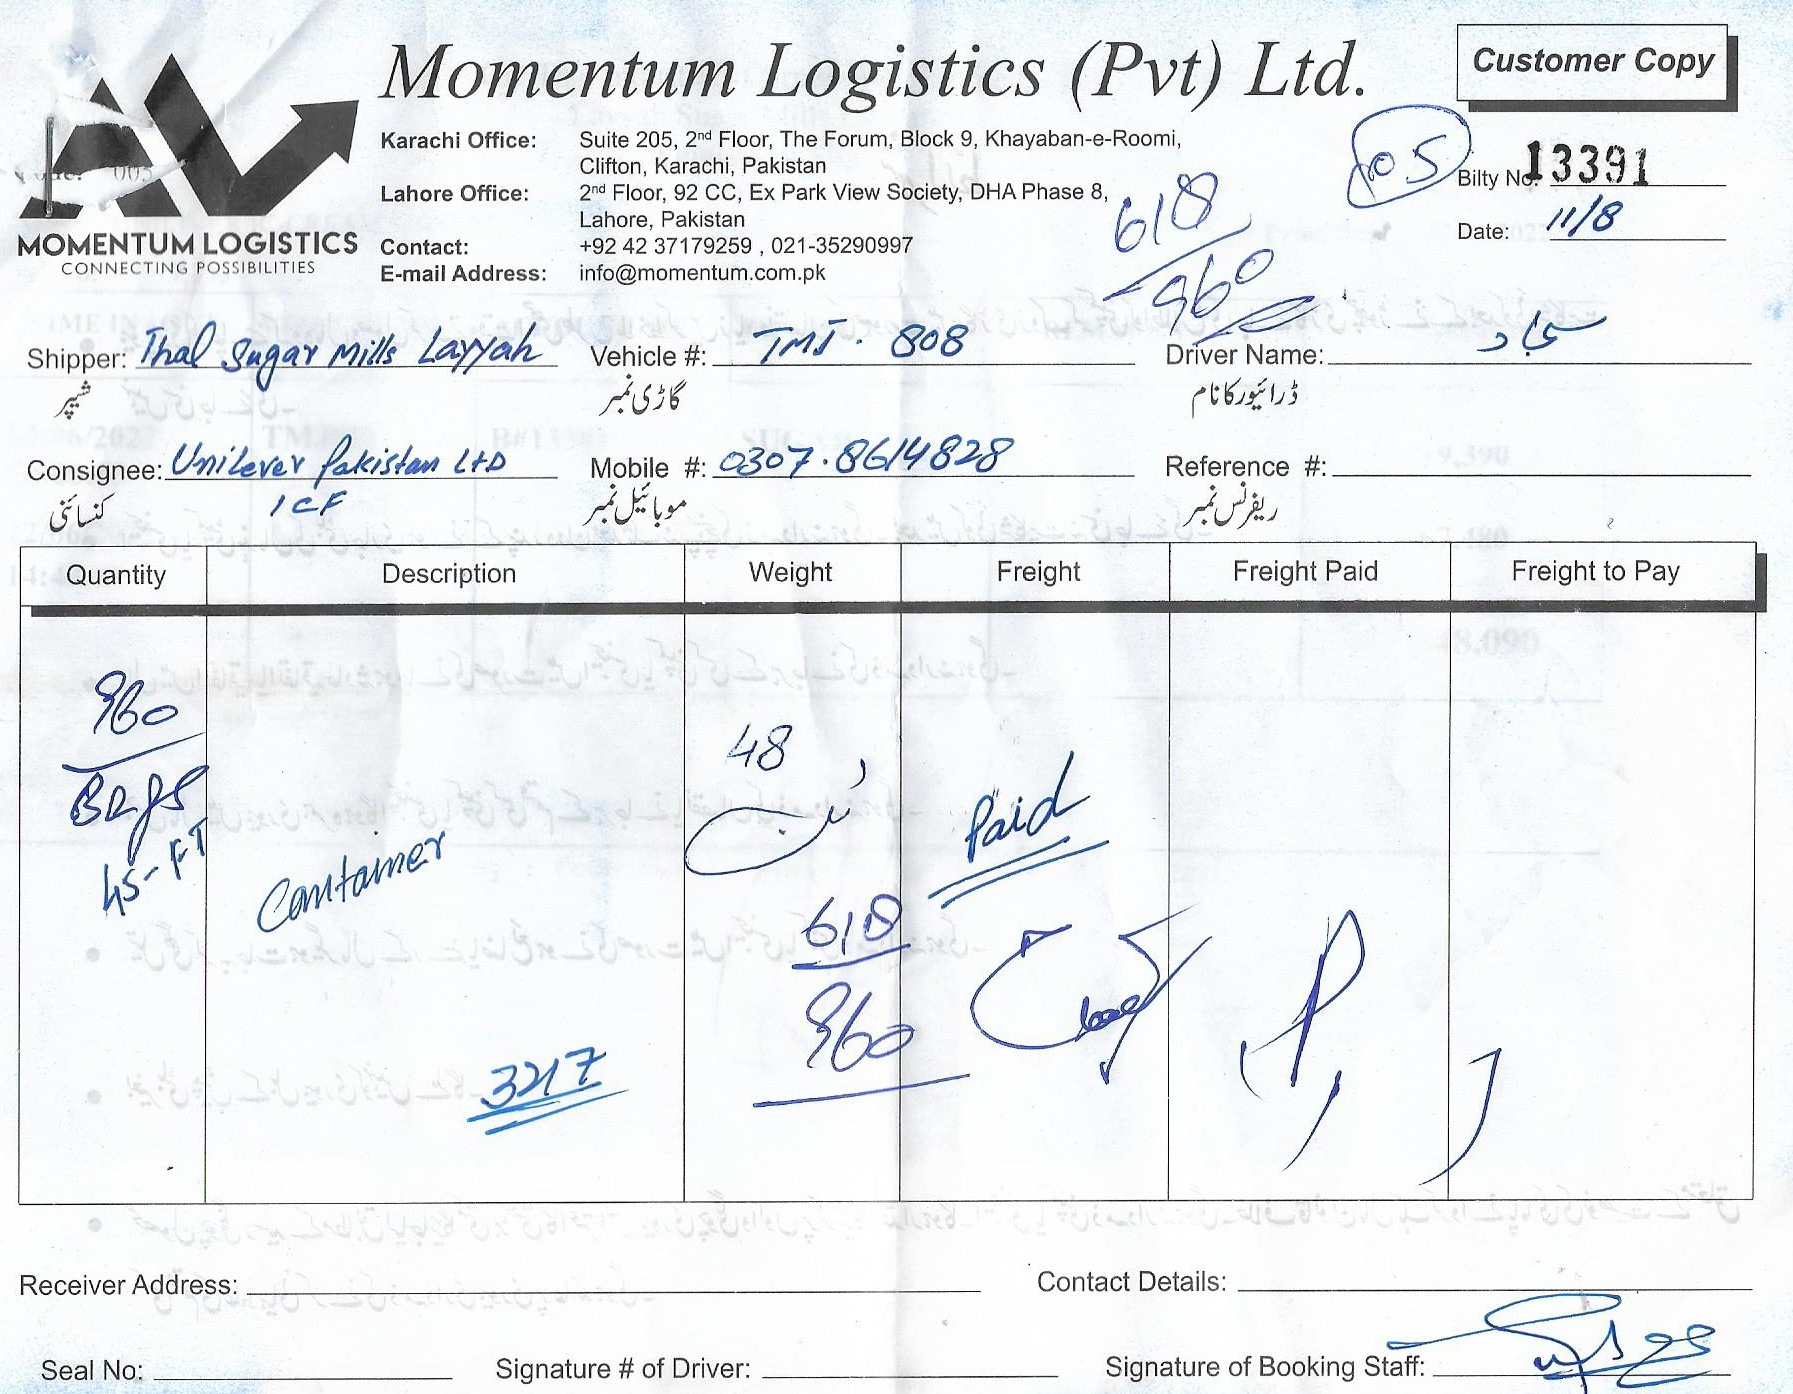 Momentum Logistics (Pvt) Ltd.
Customer Copy
MOMENTUM LOGISTICS
CONNECTING POSSIBILITIES
Karachi Office: Suite 205, 2nd Floor, The Forum, Block 9, Khayaban-e-Roomi,
Clifton, Karachi, Pakistan
Lahore Office: 2nd Floor, 92 CC, Ex Park View Society, DHA Phase 8,
Lahore, Pakistan
Contact: +92 42 37179259 , 021-35290997
E-mail Address: info@momentum.com.pk
618
960
Bilty No. 13391
Date: 11/8
Shipper: Thal Sugar Mills Layyah Vehicle #: TMJ. 808 Driver Name: سجاد
شیپر گاڑی نمبر ڈرائیور کا نام
Consignee: Unilever Pakistan LTD Mobile #: 0307.8614828 Reference #:
ICF
کنسائنی موبائیل نمبر ریفرنس نمبر
Quantity Description Weight Freight Freight Paid Freight to Pay
960 48
Bags ٹن Paid
45-FT Container
618
960
3217
Receiver Address: Contact Details:
Seal No: Signature # of Driver: Signature of Booking Staff: